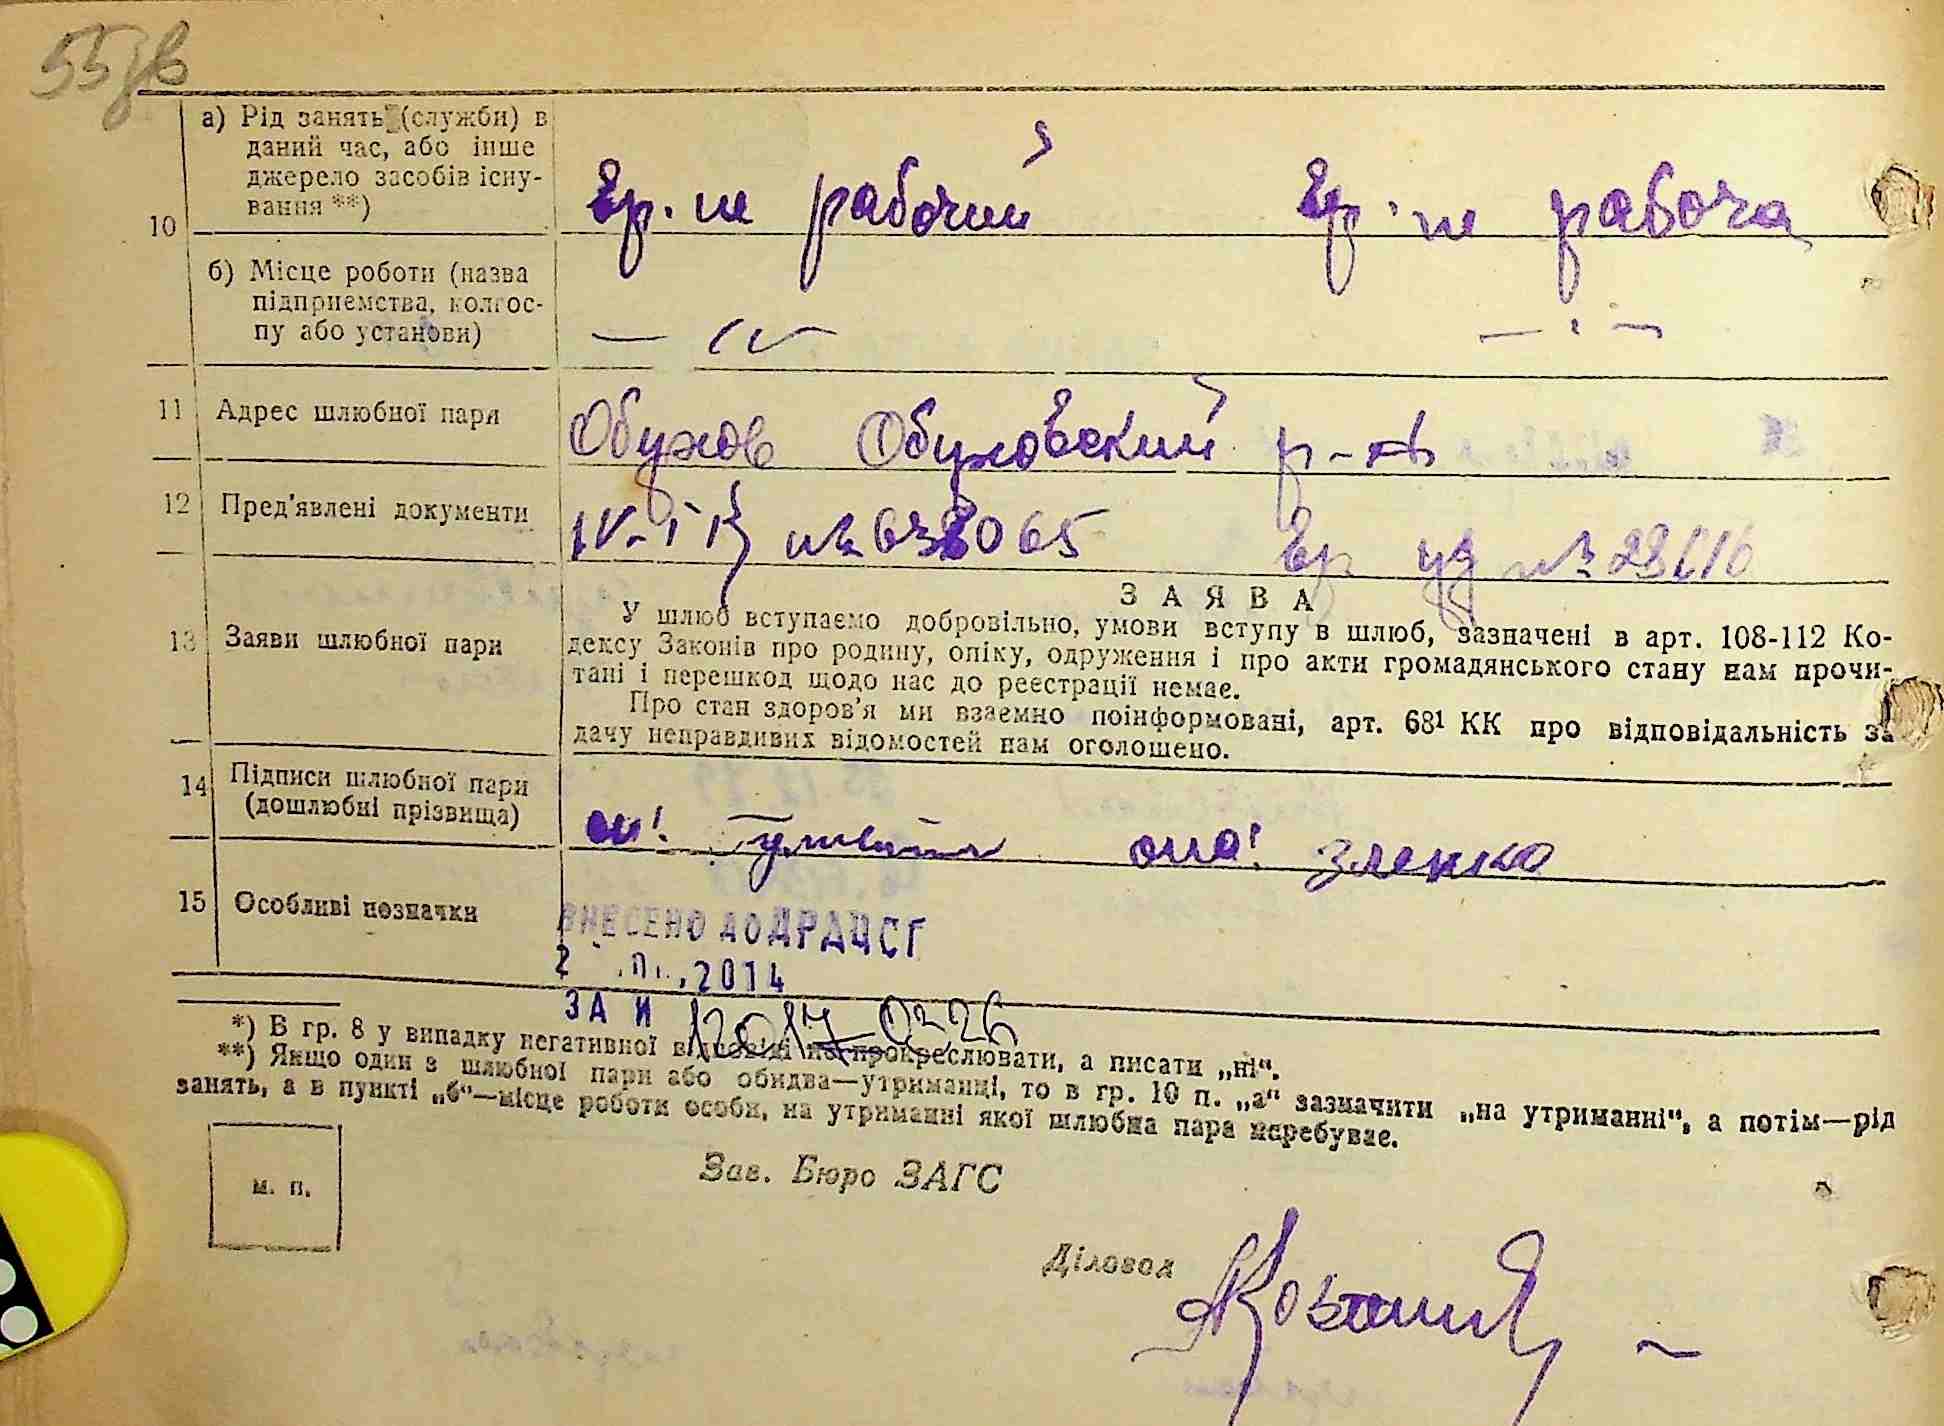 55зв
а) Рід занять (служби) в
даний час, або інше
джерело засобів існу-
вання **)
рабочий
рабоча
10
б) Місце роботи (назва
підприємства, колгос-
пу або установи)
11 Адрес шлюбної пари
Обухов Обуховский р-н
12 Пред'явлені документи
13 Заяви шлюбної пари
ЗАЯВА
У шлюб вступаємо добровільно, умови вступу в шлюб, зазначені в арт. 108-112 Ко-
дексу Законів про родину, опіку, одруження і про акти громадянського стану нам прочи-
тані і перешкод щодо нас до реєстрації немає.
Про стан здоров'я ми взаємно поінформовані, арт. 68¹ КК про відповідальність за
дачу неправдивих відомостей нам оголошено.
14 Підписи шлюбної пари
(дошлюбні прізвища)
он! она! Зленко
15 Особливі позначки
ВНЕСЕНО ДО ДРАЦСГ
2014
ЗА И
*) В гр. 8 у випадку негативної відповіді не прокреслювати, а писати „ні“.
**) Якщо один з шлюбної пари або обидва—утриманці, то в гр. 10 п. „а“ зазначити „на утриманні“, а потім—рід
занять, а в пункті „б“—місце роботи особи, на утриманні якої шлюбна пара перебуває.
м. п.
Зав. Бюро ЗАГС
Діловод